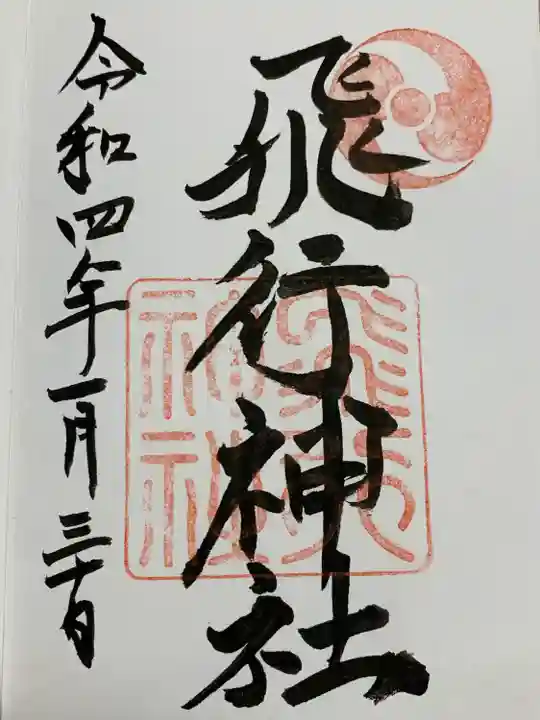 飛行神社
飛行
神社
令和四年一月三十日